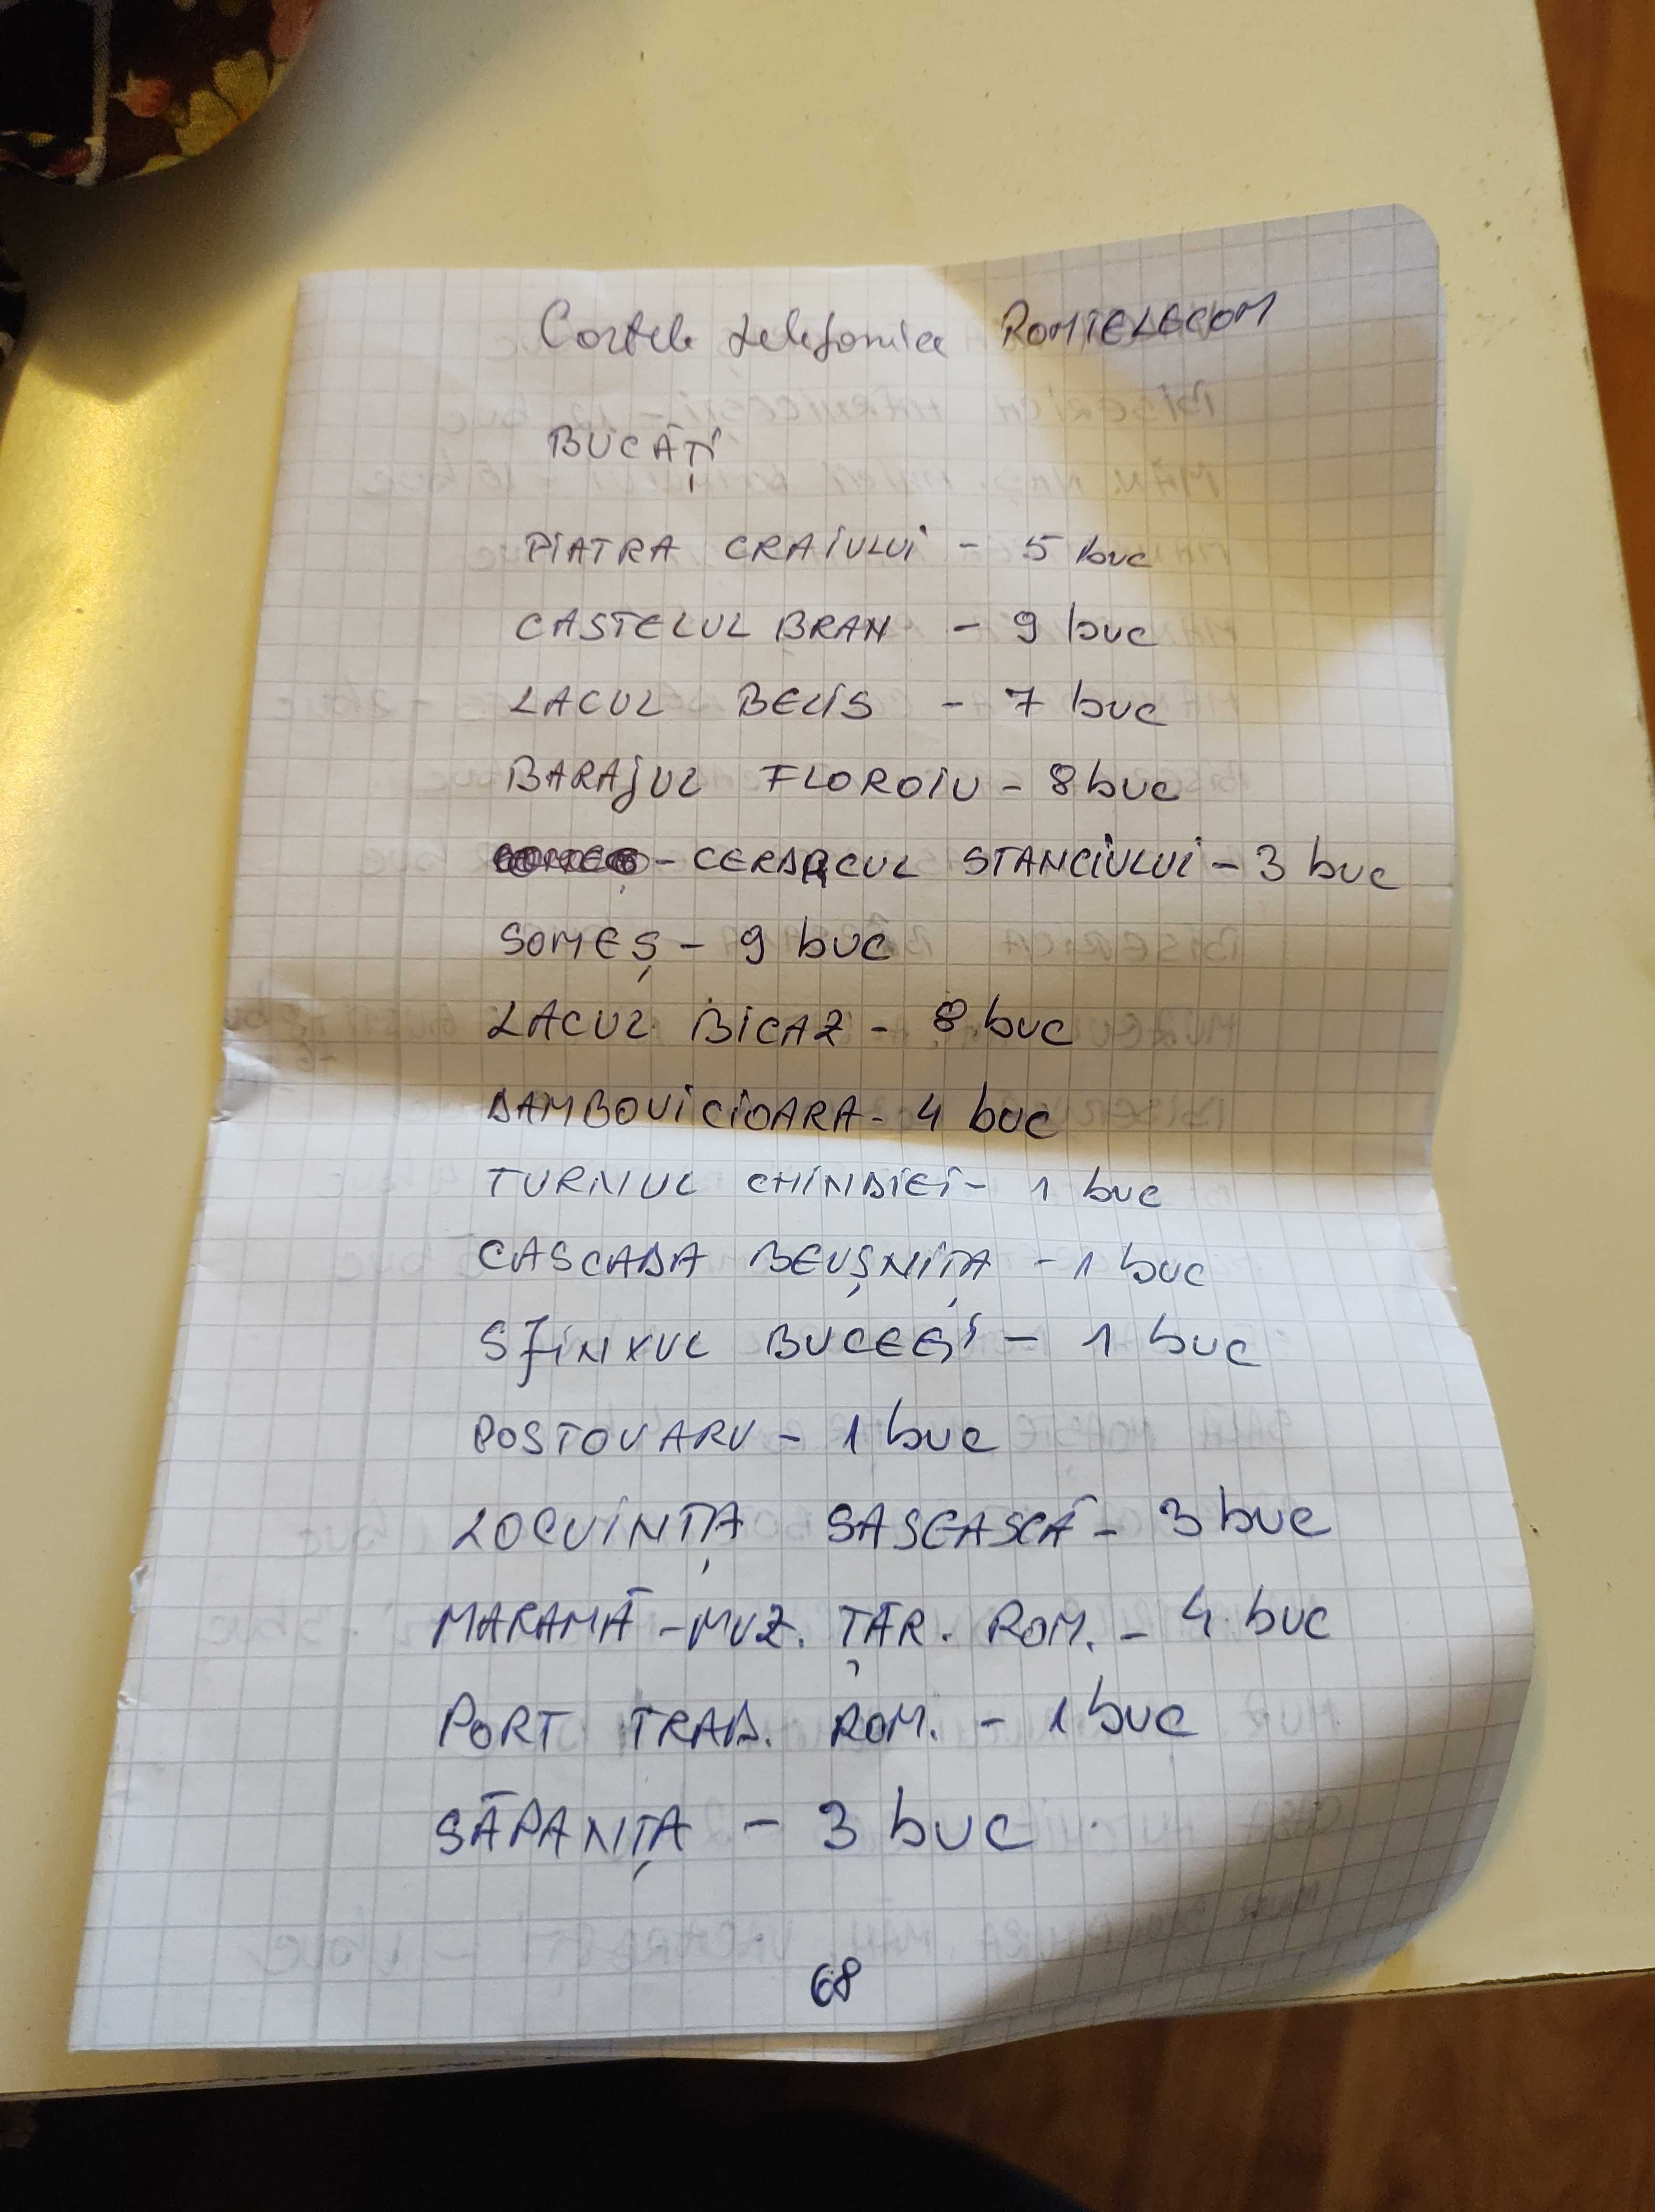 Cartele telefonice ROMTELECOM
BUCĂȚI
PIATRA CRAIULUI - 5 buc
CASTELUL BRAN - 9 buc
LACUL BELIS - 7 buc
BARAJUL FLOROIU - 8 buc
- CERDACUL STANCIULUI - 3 buc
SOMEȘ - 9 buc
LACUL BICAZ - 8 buc
DAMBOVICIOARA - 4 buc
TURNUL CHINDIEI - 1 buc
CASCADA BEUȘNIȚA - 1 buc
SFINXUL BUCEGI - 1 buc
POSTOVARU - 1 buc
LOCUINȚA SASEASCĂ - 3 buc
MARAMĂ - MUZ. ȚĂR. ROM. - 4 buc
PORT TRAD. ROM. - 1 buc
SĂPANȚA - 3 buc
68